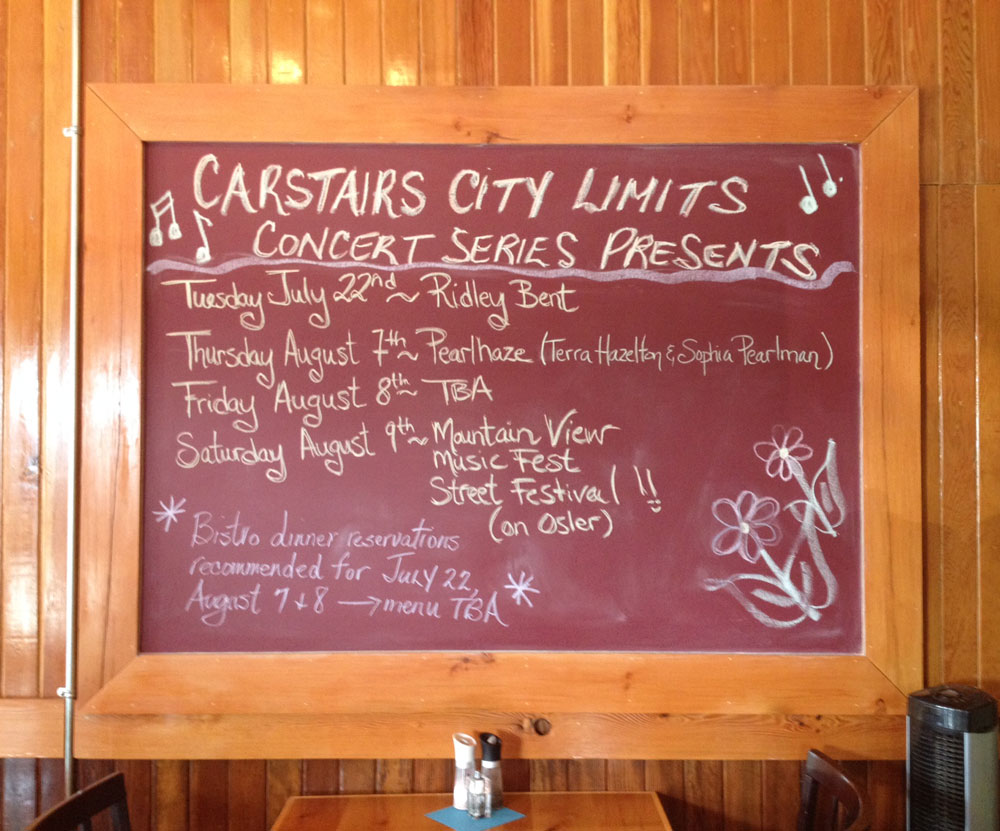 CARSTAIRS CITY LIMITS
CONCERT SERIES PRESENTS
Tuesday July 22nd ~ Ridley Bent
Thursday August 7th ~ Pearlhaze (Terra Hazelton & Sophia Pearlman)
Friday August 8th ~ TBA
Saturday August 9th ~ Mountain View
Music Fest
Street Festival !!
(on Osler)
* Bistro dinner reservations
recommended for July 22,
August 7 + 8 → menu TBA *